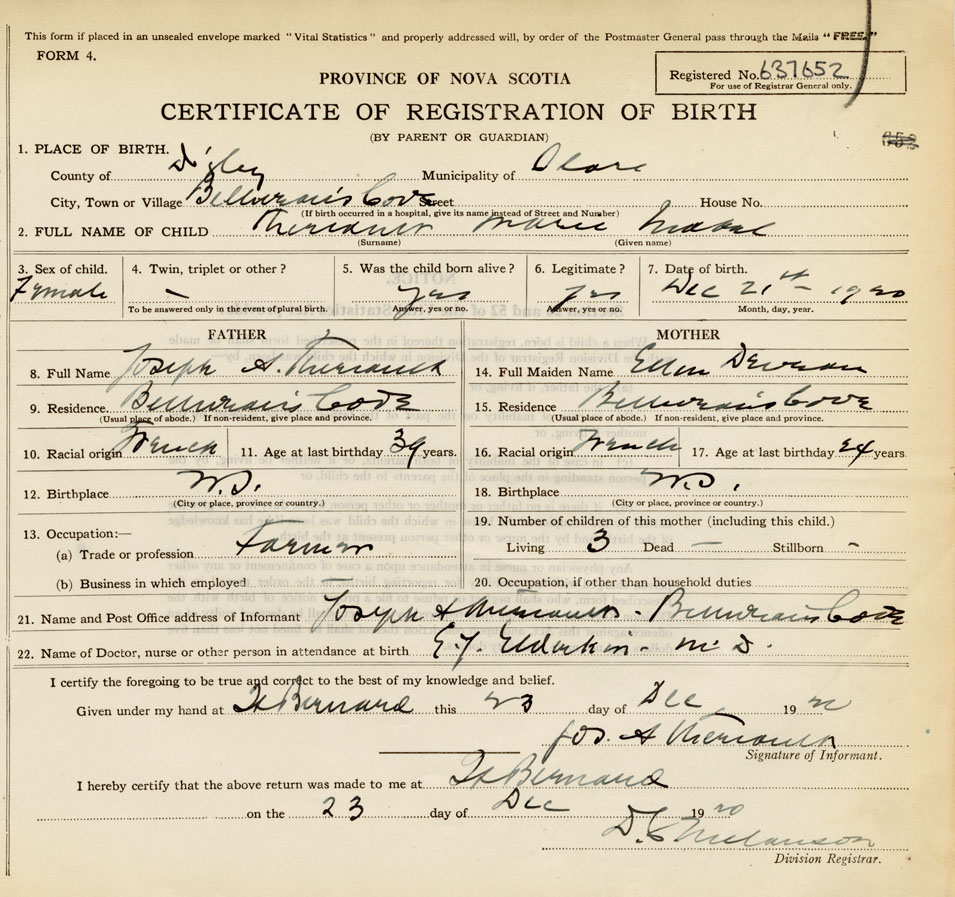 This form if placed in an unsealed envelope marked "Vital Statistics" and properly addressed will, by order of the Postmaster General pass through the Mails "FREE."
FORM 4.
Registered No. 637652
For use of Registrar General only.
PROVINCE OF NOVA SCOTIA
CERTIFICATE OF REGISTRATION OF BIRTH
(BY PARENT OR GUARDIAN)
1. PLACE OF BIRTH.
County of Digby Municipality of Clare
City, Town or Village Belliveau's Cove Street House No.
(If birth occurred in a hospital, give its name instead of Street and Number)
2. FULL NAME OF CHILD Theriault Marie
(Surname) (Given name)
3. Sex of child. 4. Twin, triplet or other? 5. Was the child born alive? 6. Legitimate? 7. Date of birth.
Female – yes yes Dec 21st 1920
To be answered only in the event of plural birth. Answer, yes or no. Answer, yes or no. Month, day, year.
FATHER MOTHER
8. Full Name Joseph A. Theriault 14. Full Maiden Name Ellen
9. Residence Belliveau's Cove 15. Residence Belliveau's Cove
(Usual place of abode.) If non-resident, give place and province. (Usual place of abode.) If non-resident, give place and province.
10. Racial origin French 11. Age at last birthday 39 years. 16. Racial origin French 17. Age at last birthday 24 years
12. Birthplace N.S. 18. Birthplace N.S.
(City or place, province or country.) (City or place, province or country.)
13. Occupation:— 19. Number of children of this mother (including this child.)
(a) Trade or profession Farmer Living 3 Dead – Stillborn -
(b) Business in which employed — 20. Occupation, if other than household duties
21. Name and Post Office address of Informant Joseph A Theriault - Belliveau's Cove
22. Name of Doctor, nurse or other person in attendance at birth E.F. - M.D.
I certify the foregoing to be true and correct to the best of my knowledge and belief.
Given under my hand at St Bernard this 23 day of Dec 19 20
Jos. A Theriault
Signature of Informant.
I hereby certify that the above return was made to me at St Bernard
on the 23 day of Dec 19 20
Melanson
Division Registrar.